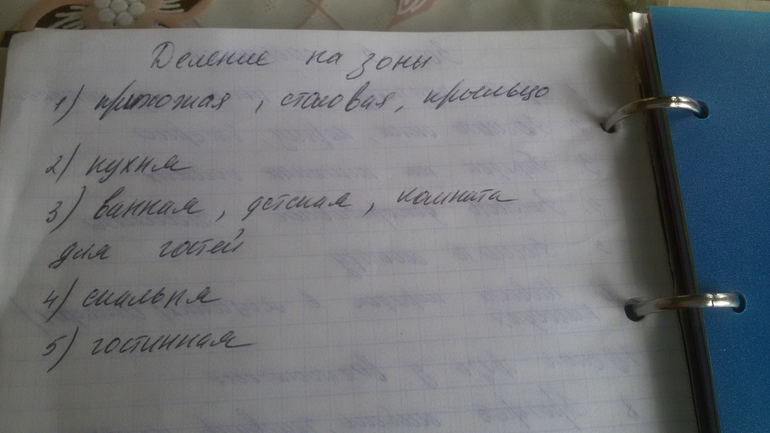 Деление на зоны
1) прихожая, столовая, крыльцо
2) кухня
3) ванная, детская, комната
для гостей
4) спальня
5) гостинная